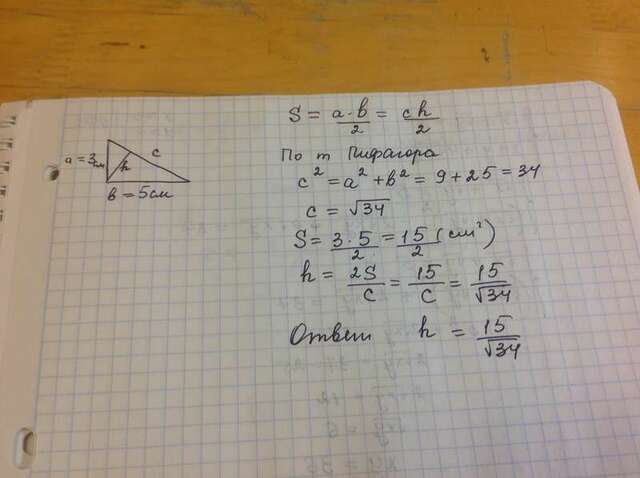 S = a·b/2 = ch/2
a = 3см
h
c
b = 5см
По т Пифагора
c² = a² + b² = 9 + 25 = 34
c = √34
S = 3·5/2 = 15/2 (см²)
h = 2S/c = 15/c = 15/√34
Ответ h = 15/√34